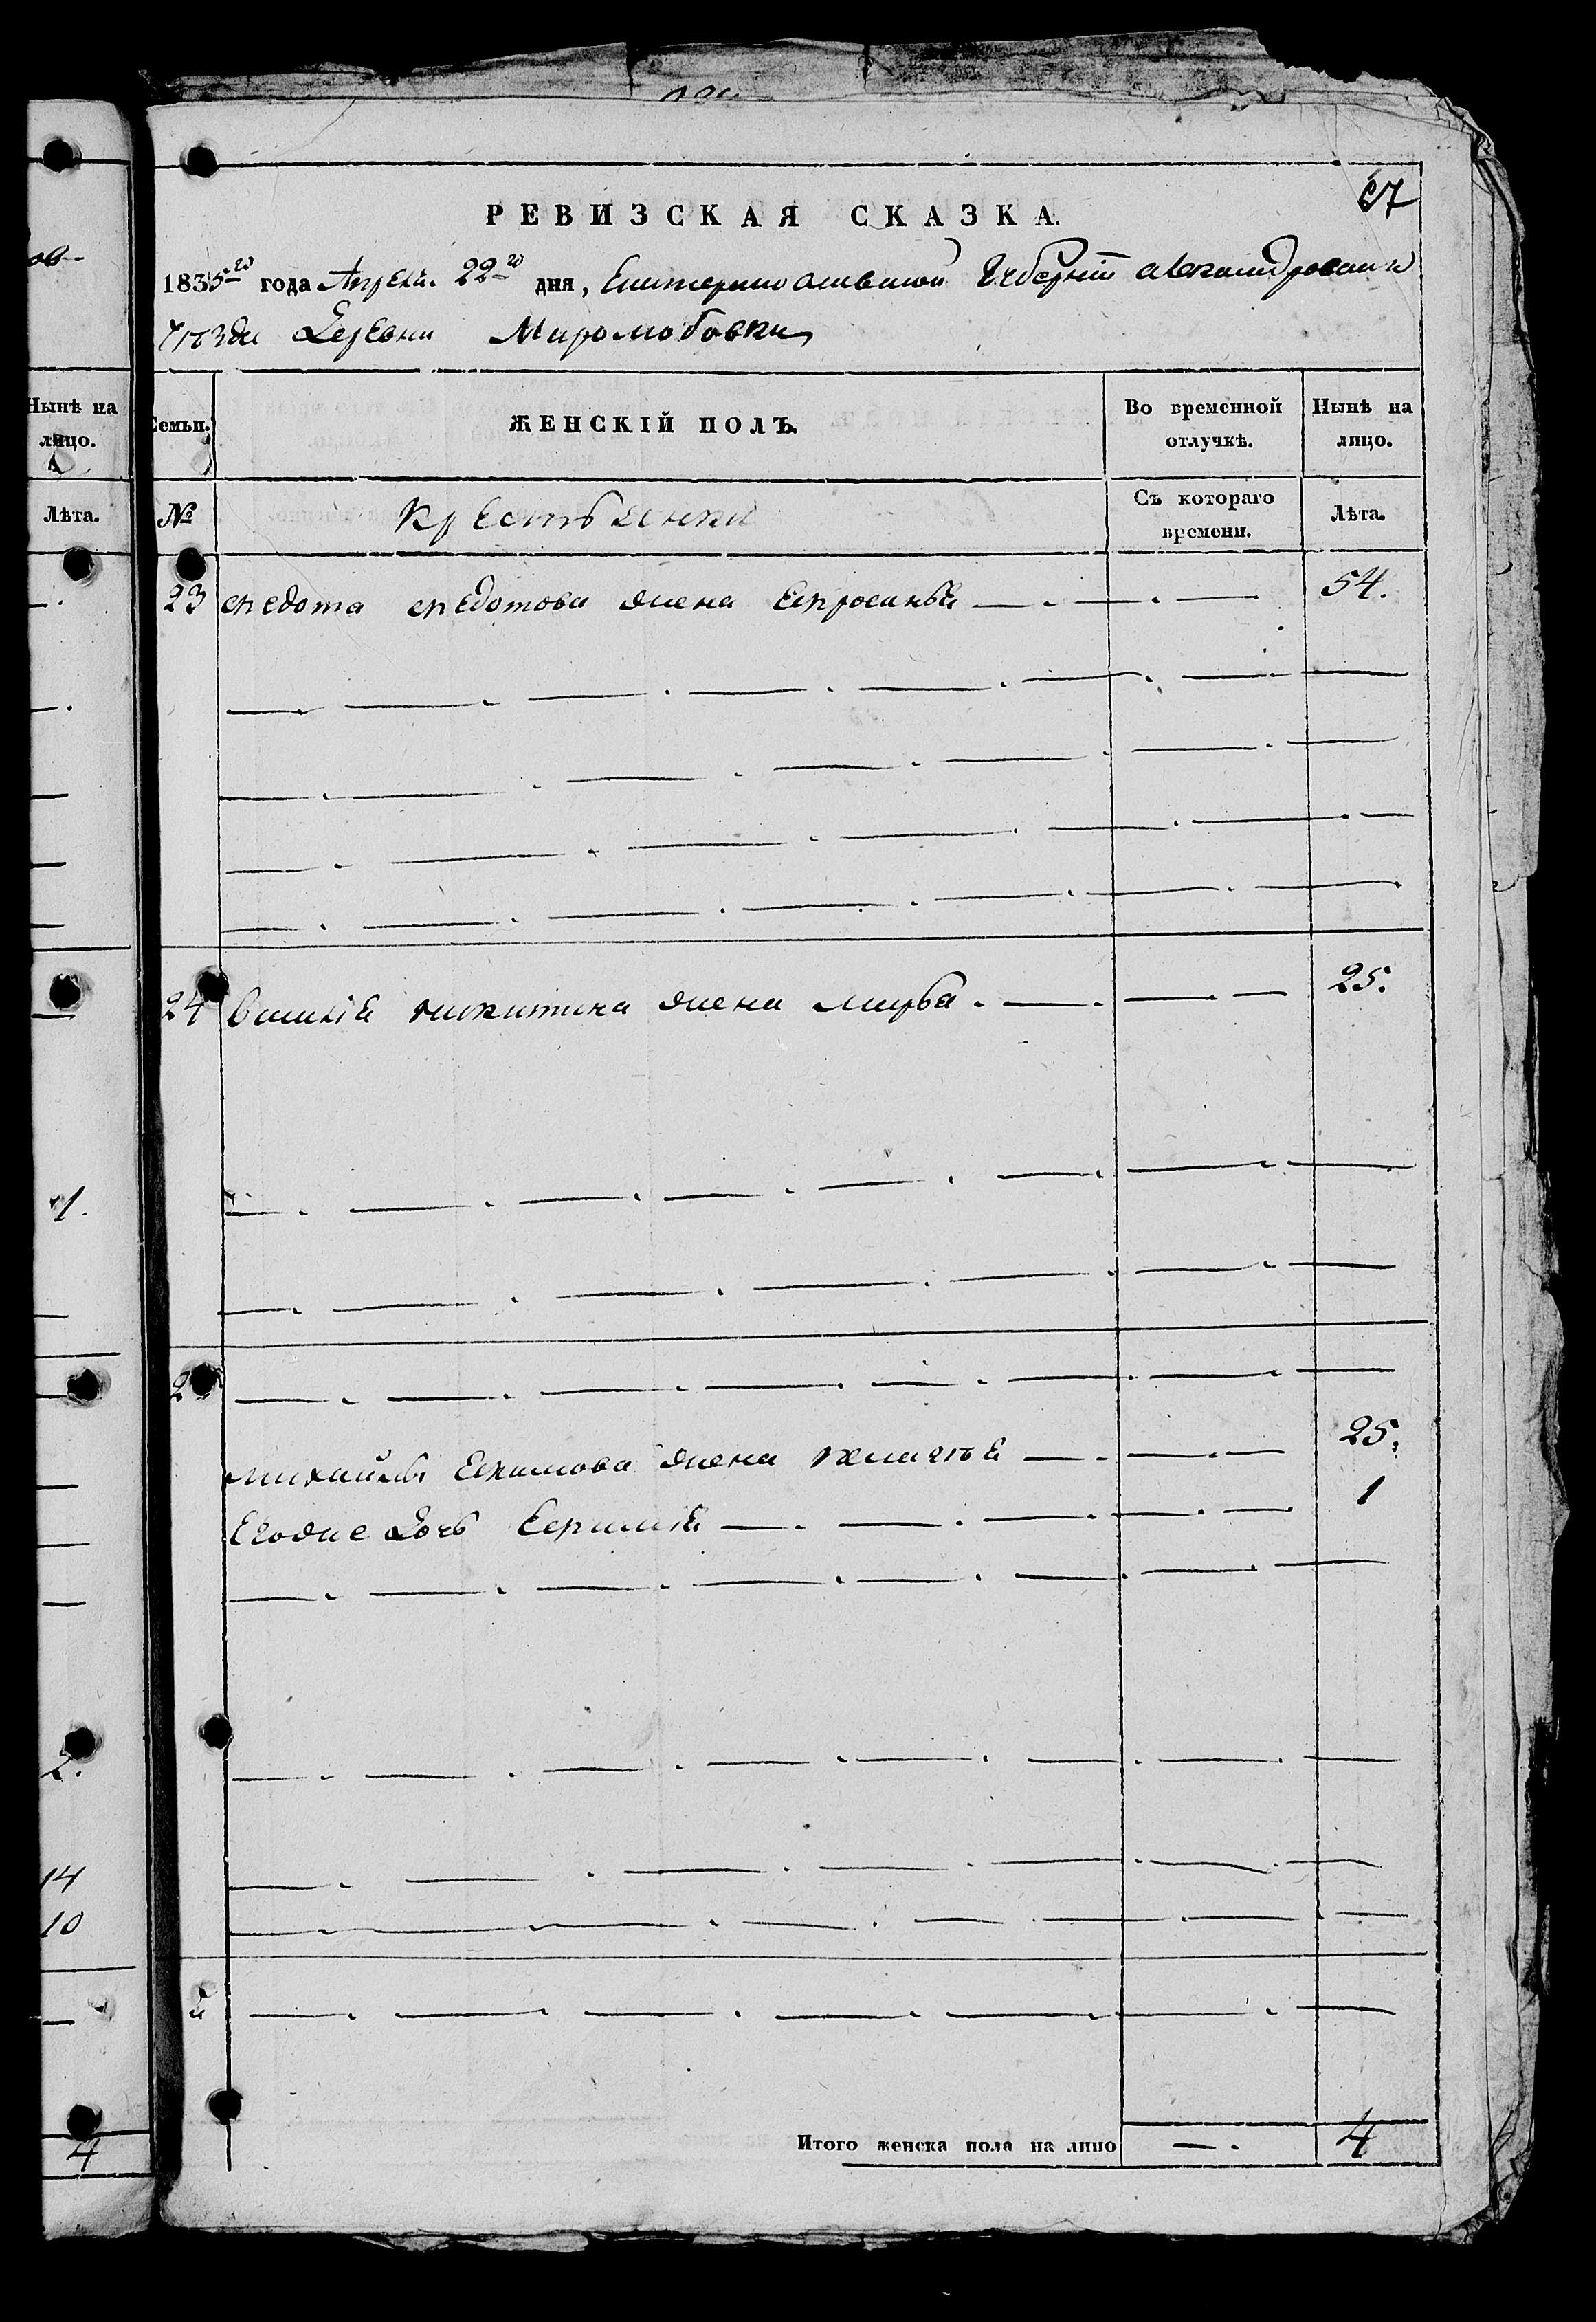 ов
Нынѣ на
лицо.
Лѣта.
1.
2.
14
10
4
67
РЕВИЗСКАЯ СКАЗКА.
1835го года Апреля 22го дня, Екатеринославской Губерніи Александровскаго
уѣзда Деревни Миролюбовки
Семьи. ЖЕНСКІЙ ПОЛЪ. Во временной отлучкѣ. Нынѣ на лицо.
№ Крестьянки Съ котораго времени. Лѣта.
23 Федота Федотова жена Ефросинья 54.
24 Василія Никитина жена Марфа 25.
2
Михайлы Ефимова жена 25.
Егоже дочь 1
2
Итого женска пола на лицо — 4